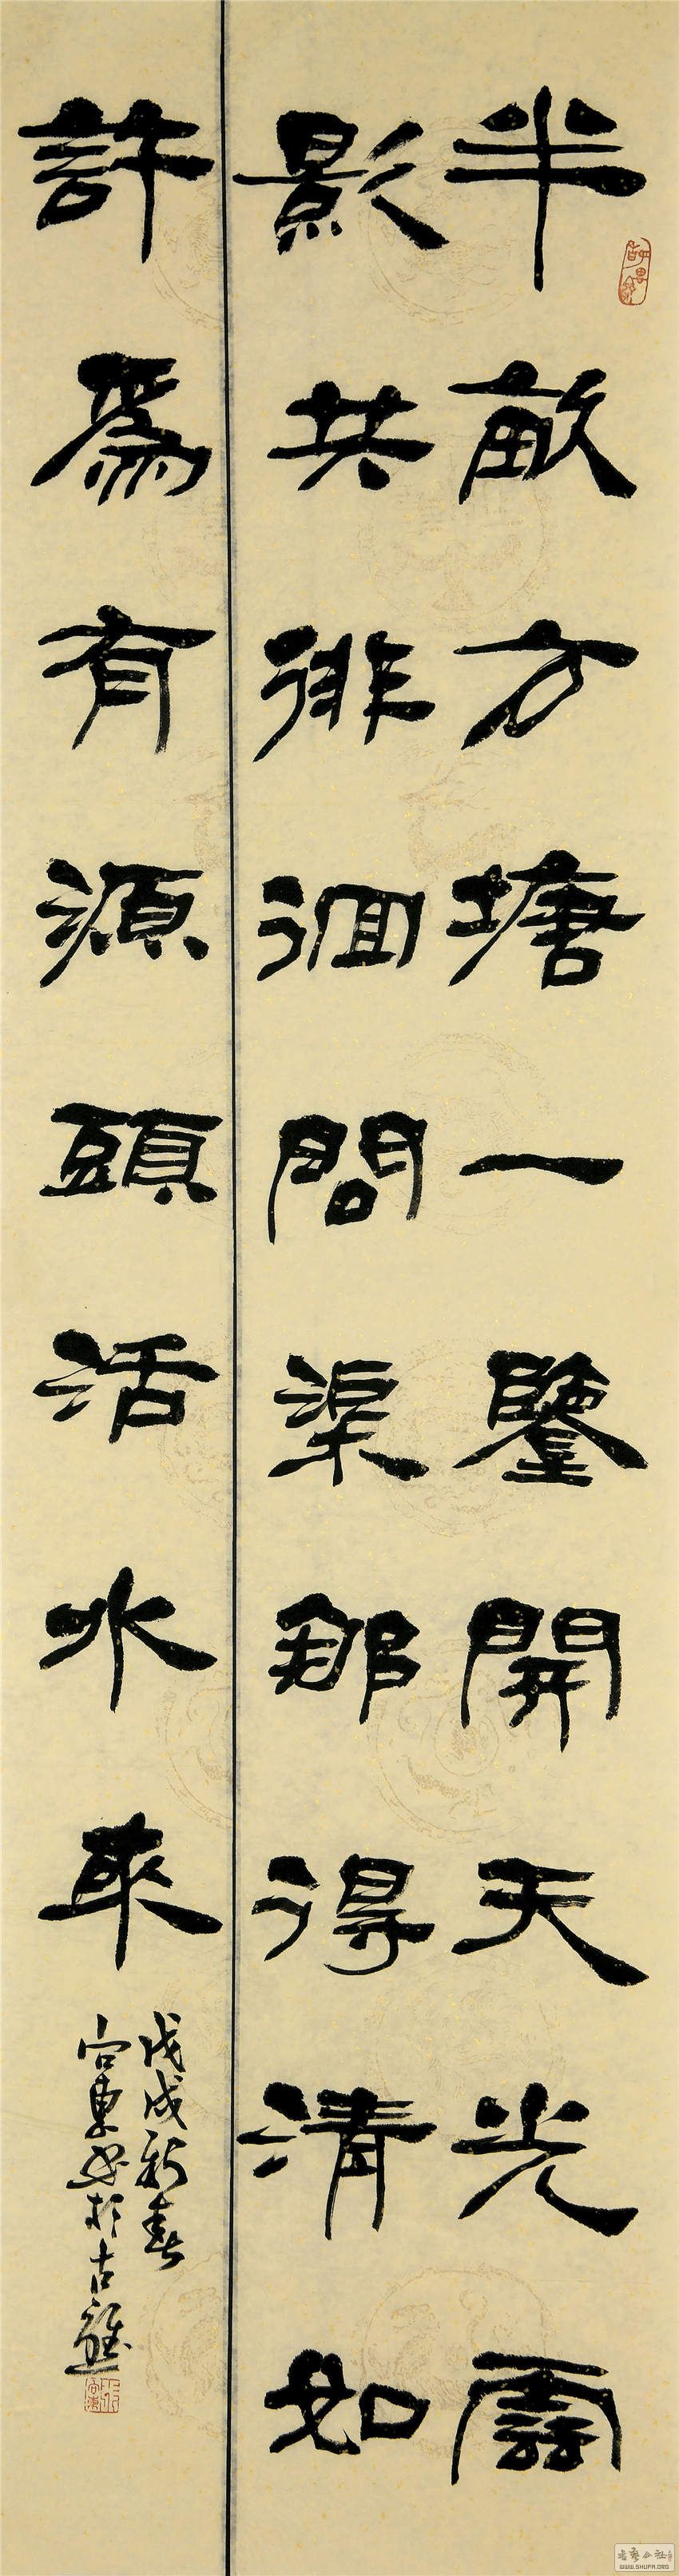 半畝方塘一鑒開天光雲
影共徘徊問渠那得清如
許爲有源頭活水來
戊戌新春
向東書於古
WWW.SHUFA.ORG